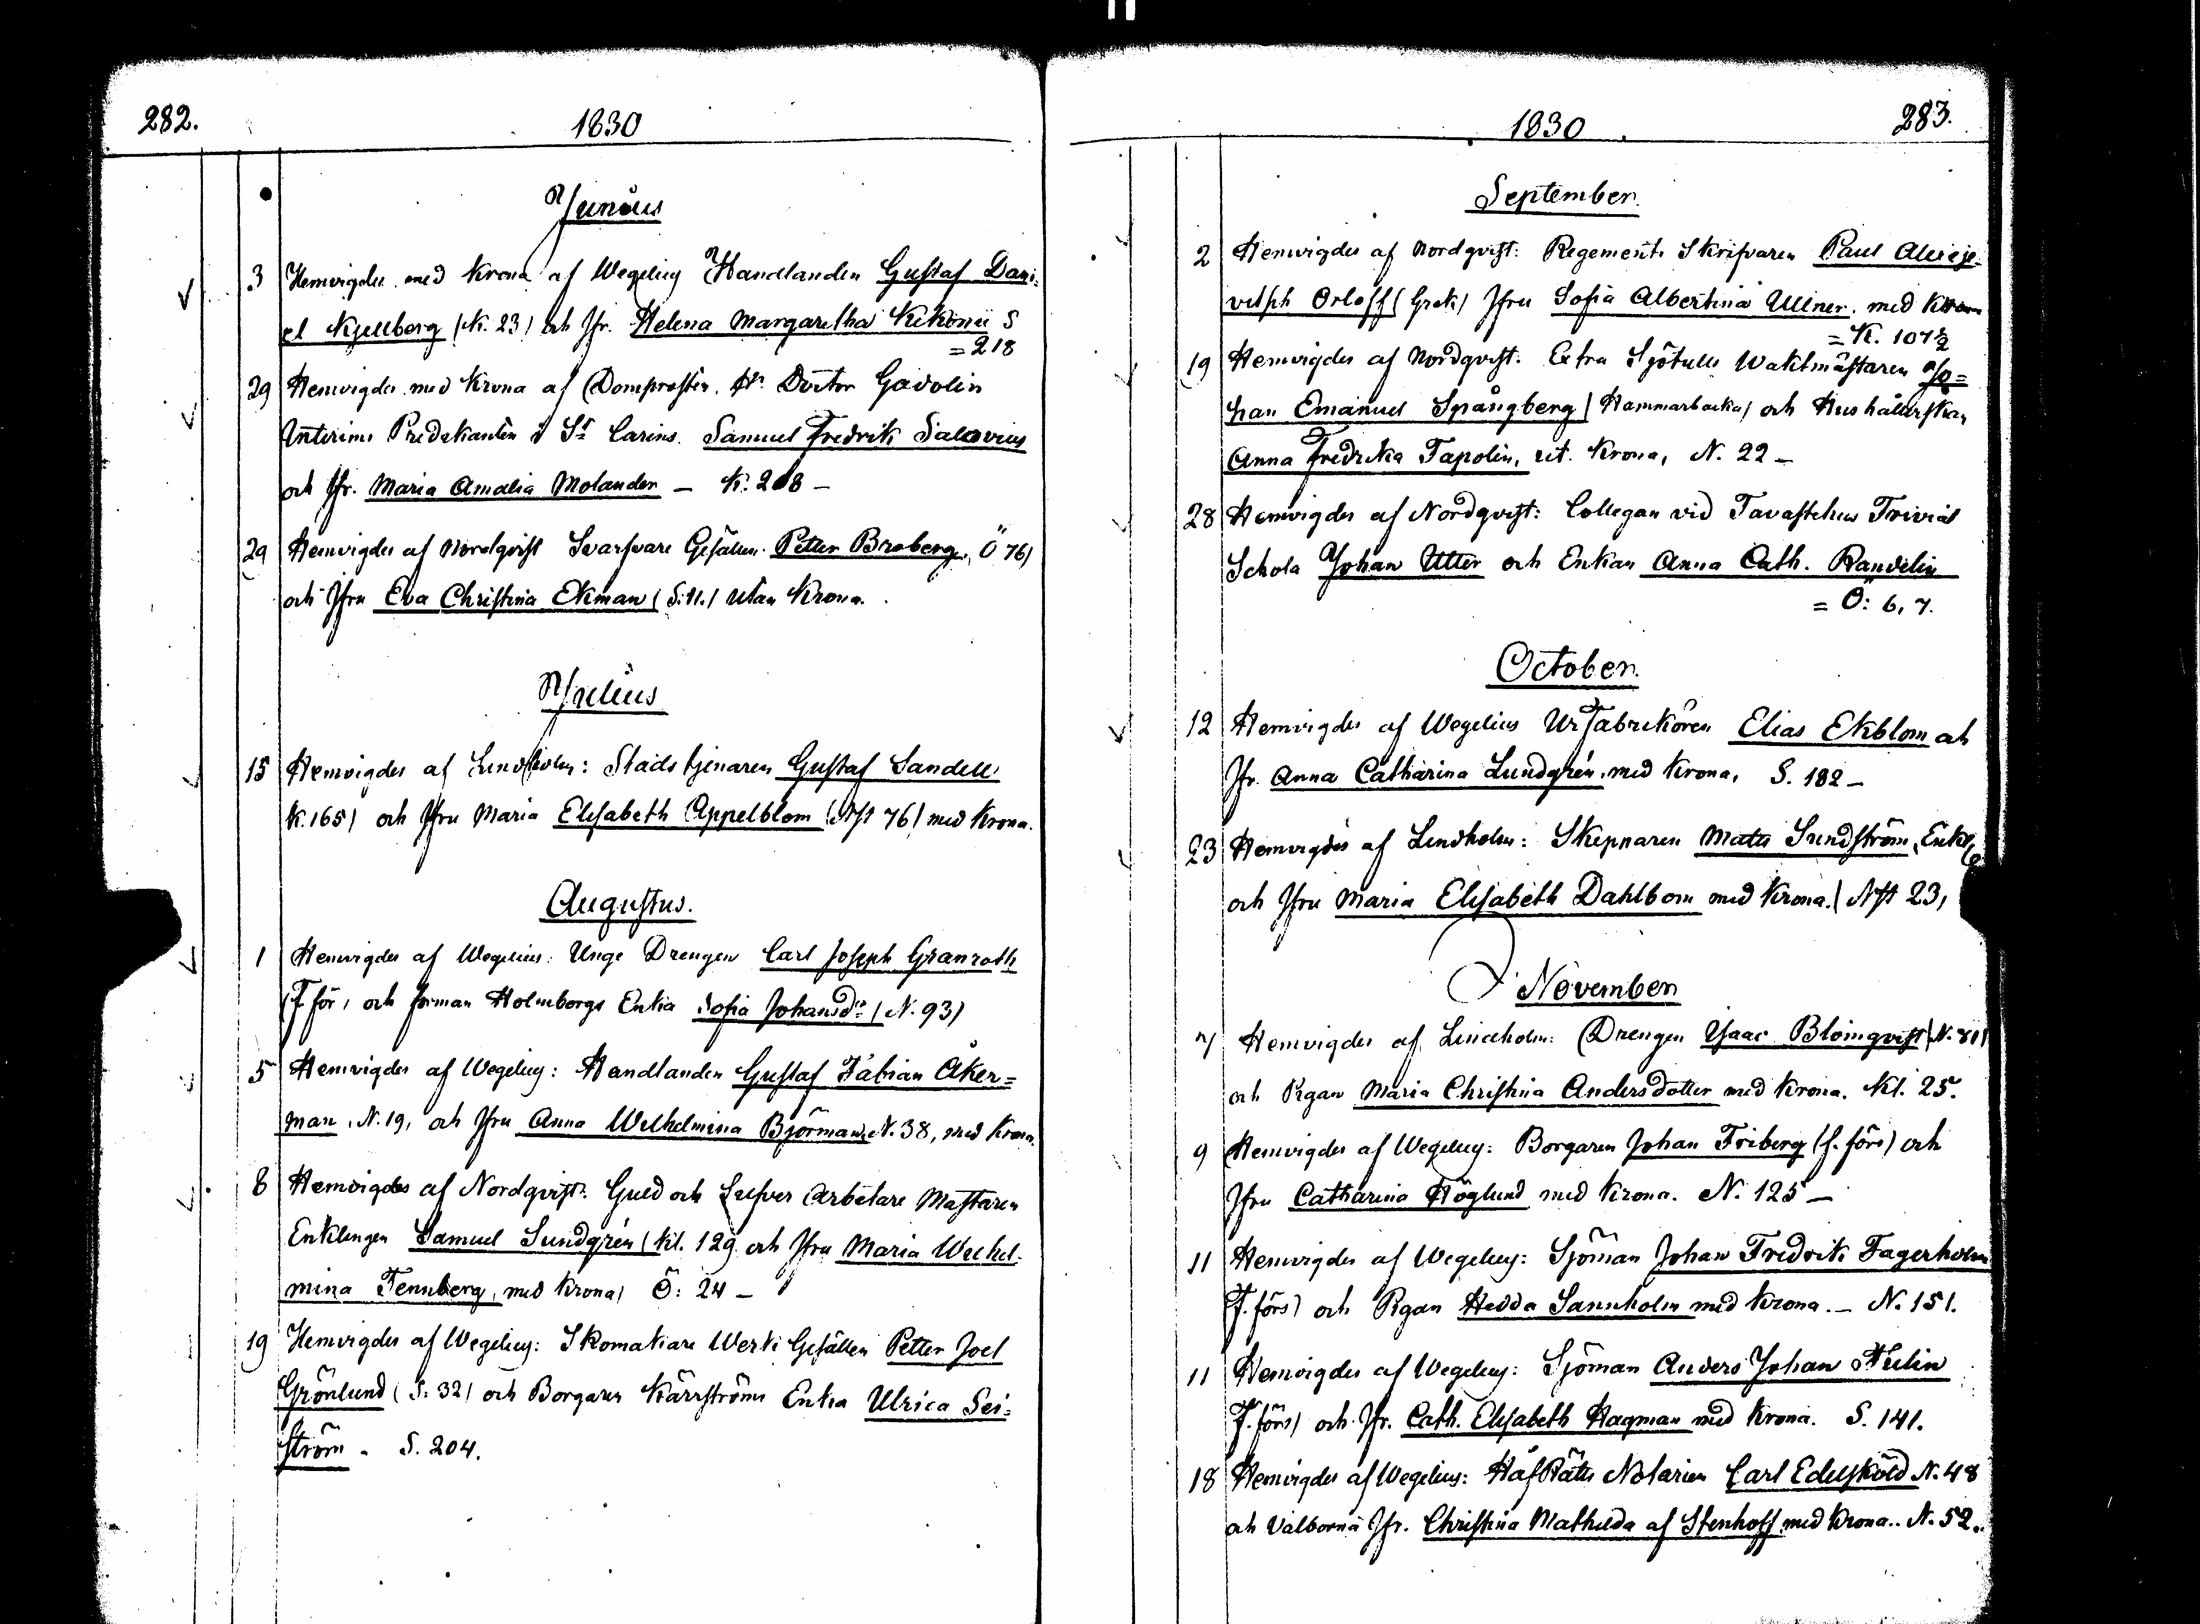 282.
1830
Junius
3 Hemvigdes med Krona af Wegelius Handlanden Gustaf Dani-
el Kjellberg (K. 23) och Jfr. Helena Margaretha Kekonii S
= 218
29 Hemvigdes med Krona af Domprosten Hr Doctor Gadolin
Interims Predikanten i St Carins. Samuel Fredrik Salovius
och Jfr. Maria Amalia Molander – K. 208 –
29 Hemvigdes af Nordqvist Svarfvare Gesällen Petter Broberg, Ö 76)
och Jfru Eva Christina Ekman (S. 11.) utan Krona.
Julius
15 Hemvigdes af Lindholm: Stadstjenaren Gustaf Sandell
K. 165) och Jfru Maria Elisabeth Appelblom (Nst 76) med Krona.
Augustus.
1 Hemvigdes af Wegelius: Unge Drengen Carl Joseph Granroth
(F. för, och forman Holmborgs Enka Sofia Johansdr (N. 93)
5 Hemvigdes af Wegelius: Handlanden Gustaf Fabian Åker=
man, N. 19, och Jfru Anna Wilhelmina Björman, N. 38, med Krona.
8 Hemvigdes af Nordqvist: Guld och Silfver Arbetare Mästaren
Enklingen Samuel Sundgrén (Kl. 129 och Jfru Maria Wilhel-
mina Tennberg, med Krona, Ö: 24 –
19 Hemvigdes af Wegelius: Skomakare Verks Gesällen Petter Joel
Grönlund (S: 32) och Borgaren Kärrströms Enka Ulrica Sei=
ström – S. 204.
1830
283.
September.
2 Hemvigdes af Nordqvist: Regements Skrifvaren Paul
Orloff (Grek) Jfru Sofia Albertina Ullner. med Krona
= K. 107½
19 Hemvigdes af Nordqvist. Extra Sjötulls Waktmästaren Jo=
han Emanuel Spångberg (Hammarbacka) och Hushållerskan
Anna Fredrika Tapolin, ut. Krona, N. 22 –
28 Hemvigdes af Nordqvist: Collegan vid Tavastehus Trivial
Schola Johan Utter och Enkan Anna Cath. Randelin
= Ö: 6, 7.
October.
12 Hemvigdes af Wegelius Ur Fabrikören Elias Ekblom och
Jfr. Anna Catharina Lundgrén, med Krona, S. 182 –
23 Hemvigdes af Lindholm: Skepparen Matts Sundström, Enkl
och Jfru Maria Elisabeth Dahlbom med Krona. (Nst 23,
November
7 Hemvigdes af Lindholm: Drengen Isaac Blomqvist (N. 81)
och Pigan Maria Christina Andersdotter med Krona. Kl. 25.
9 Hemvigdes af Wegelius: Borgaren Johan Friberg (f. förs) och
Jfru Catharina Höglund med Krona. N. 125 –
11 Hemvigdes af Wegelius: Sjöman Johan Fredrik Fagerholm
(F. förs) och Pigan Hedda Sannholm med Krona. – N. 151.
11 Hemvigdes af Wegelius: Sjöman Anders Johan
F. förs) och Jfr. Cath. Elisabeth Hagman med Krona. S. 141.
18 Hemvigdes af Wegelius: HofRätts Notarien Carl Edelsköld N. 48
och Välborna Jfr. Christina Mathilda af Stenhoff med Krona.. N. 52..